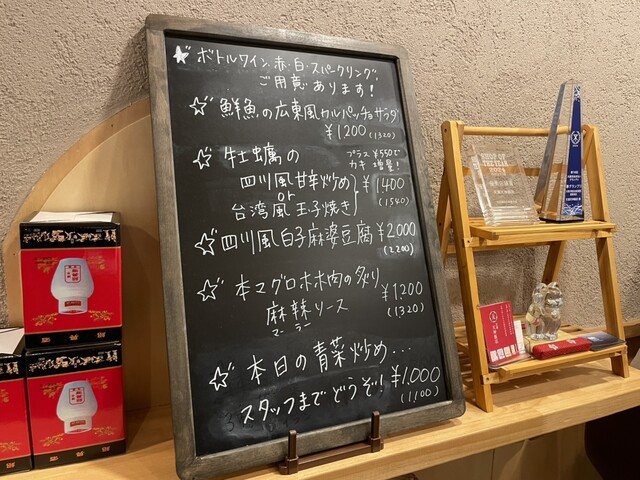 ☆ボトルワイン、赤・白・スパークリング、
ご用意あります!
☆鮮魚の広東風カルパッチョサラダ
¥1200(1320)
☆牡蠣の
プラス¥550で
カキ増量!
四川風甘辛炒め
or
台湾風玉子焼き
¥1400
(1540)
☆四川風白子麻婆豆腐¥2000
(2,200)
☆本マグロホホ肉の炙り
麻辣ソース
マーラー
¥1,200
(1320)
☆本日の青菜炒め...
スタッフまでどうぞ!¥1,000
(1100)
SHOP OF
THE YEAR